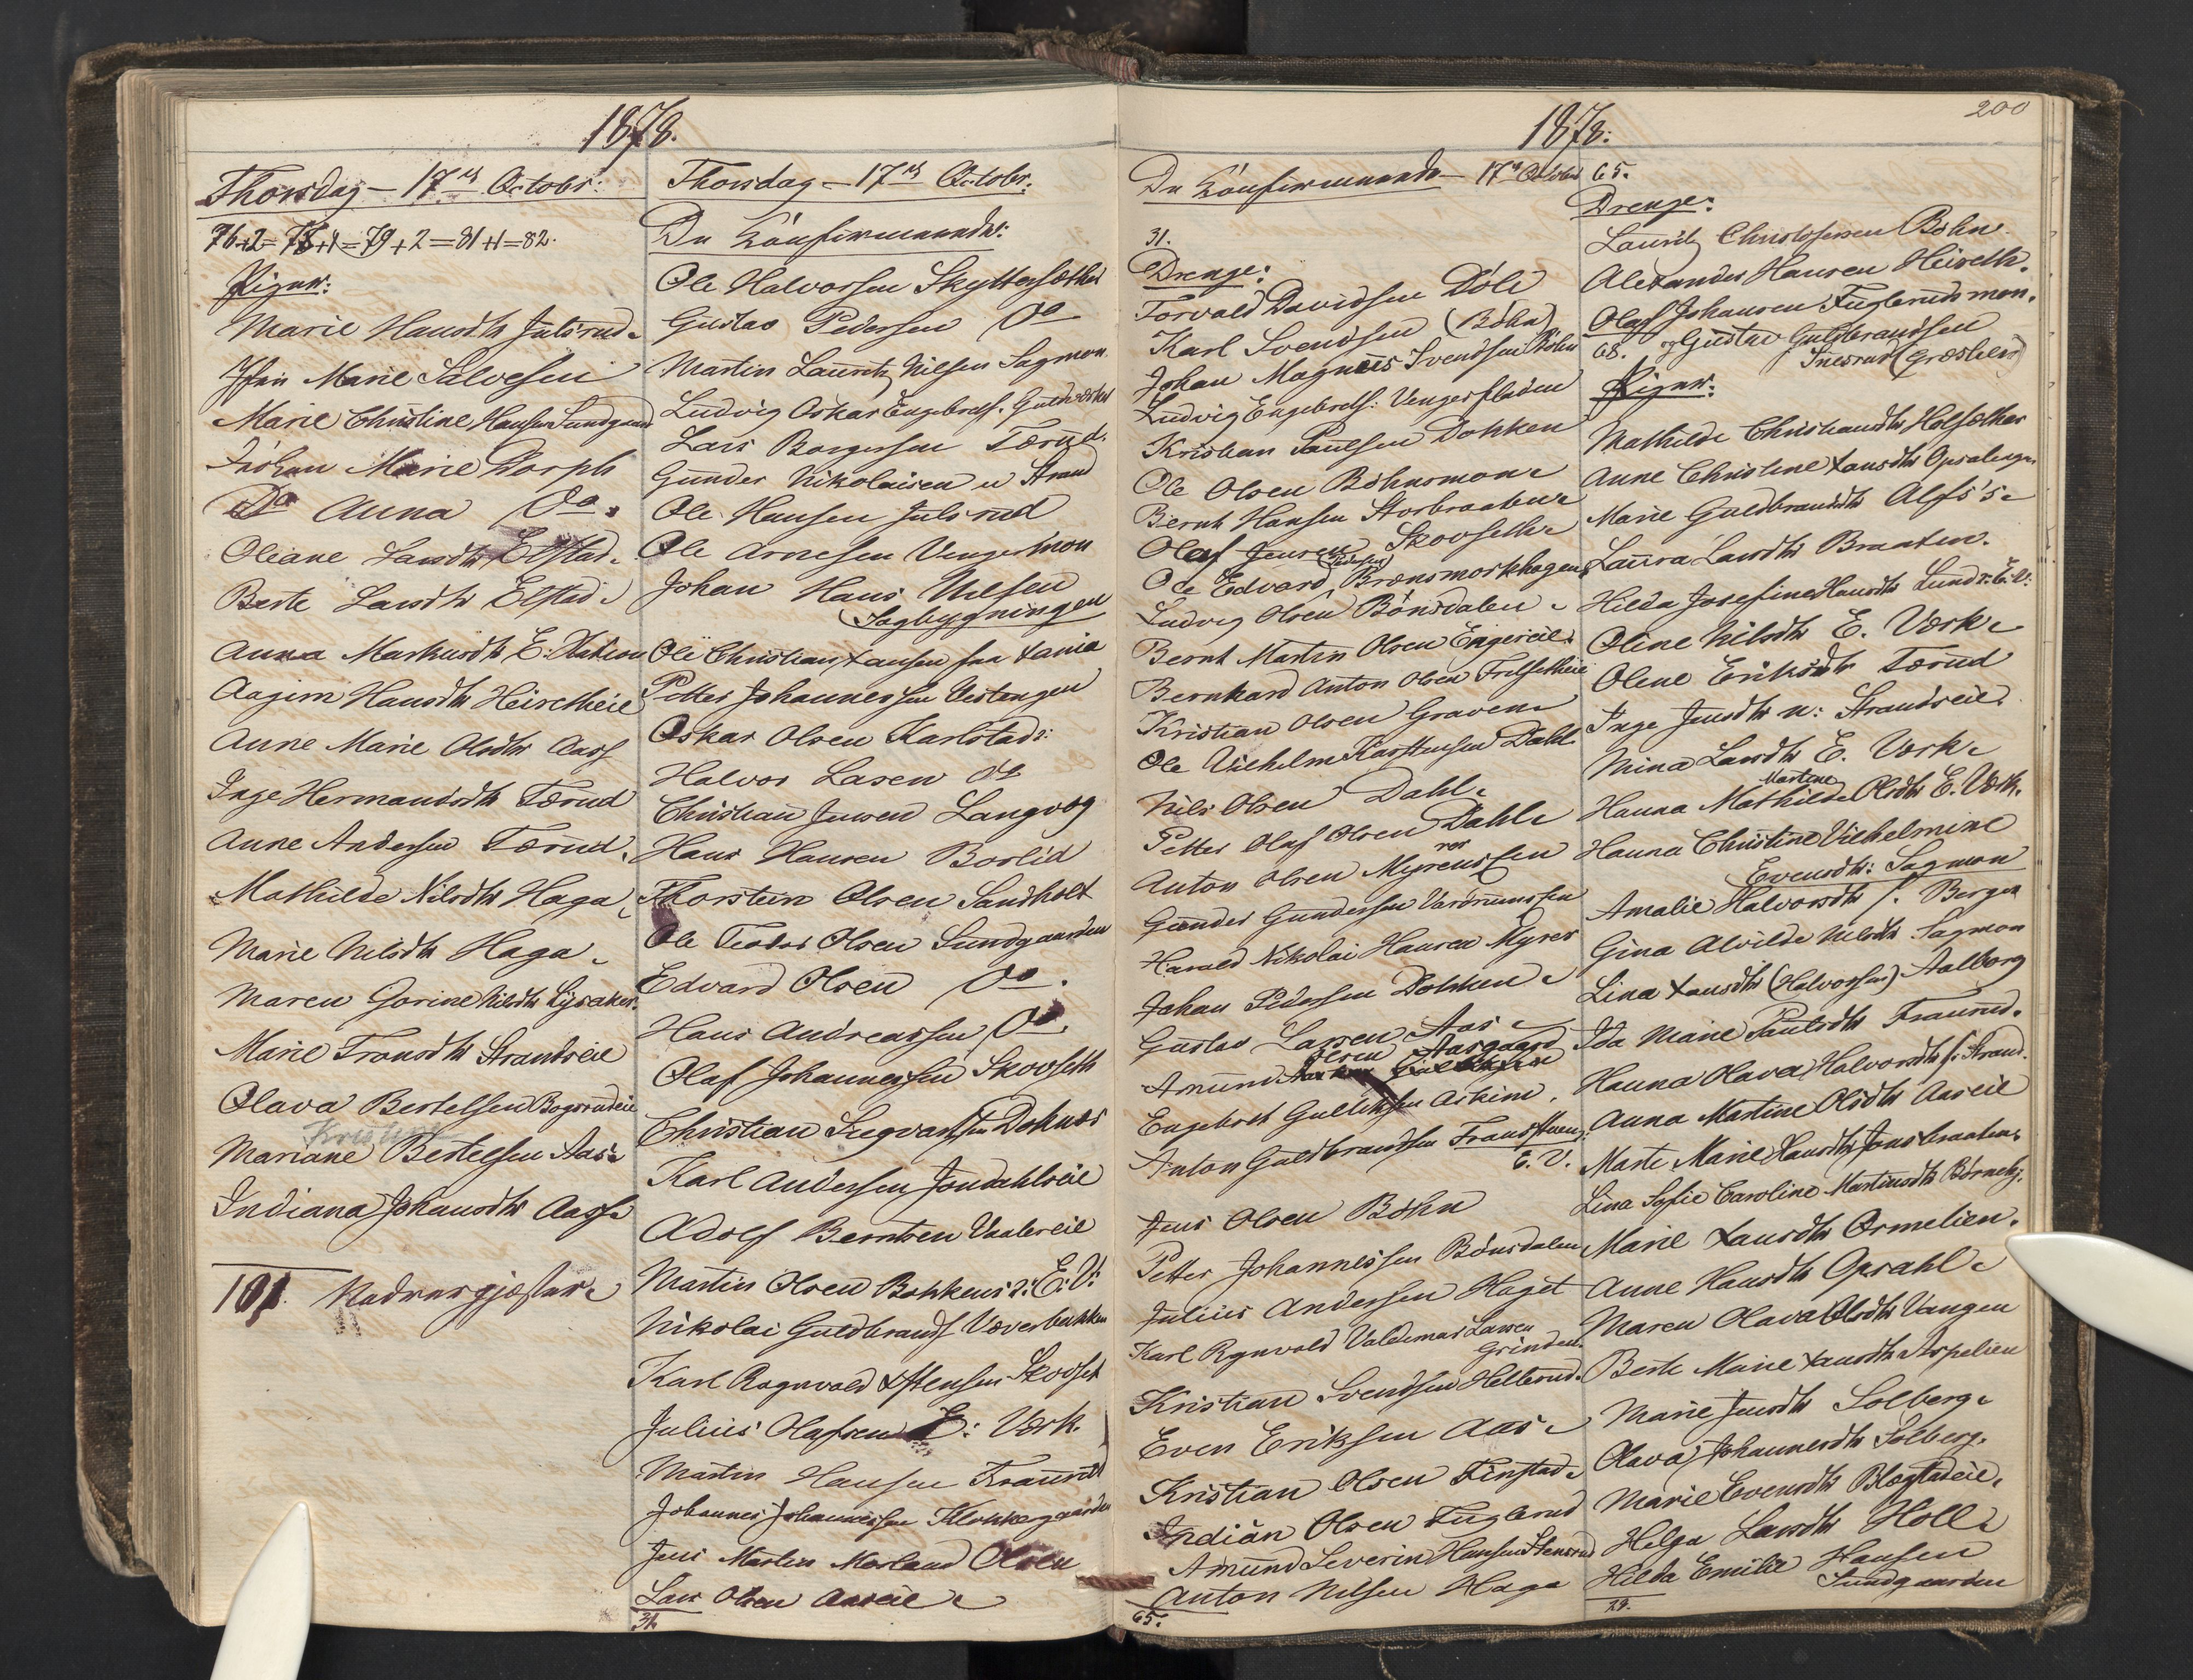 1878.
Thorsdag - 17de Octobr:
76+2=78+1=79+2=81+1=82.
Piger:
Marie Hansdtr Julsrud
Marie Salvesen
Marie Christine Hansen Sundgaard
Johan Marie Dorph
Do Anna Do.
Oleane Larsdtr Elstad.
Berte Larsdtr Elstad.
Anna Markusdtr E. Station
Aagim Hansdtr Heiretheie
Anne Marie Olsdtr Aass
Inge Hermansdtr Tærud
Anne Andersen Tærud.
Mathilde Nilsdtr Haga
Marie Nilsdtr Haga.
Maren Gorine Nilsdtr Lysaker.
Marie Fransdtr Strandseie
Olava Bertelsen Bogsrudeie
Kristine
Mariane Bertelsen Aas
Indiana Johansdtr Aas
101. Nadvergjæster.
Thorsdag - 17de Octobr.
De Konfirmerede:
Ole Halvorsen Skyttersæther
Gustav Pedersen Do
Martin Lauritz Nilsen Sagmon
Ludvig Oskar Engebrets.
Lars Borgersen Tærud.
Gunder Nikolaisen n Strand
Ole Hansen Julsrud
Ole Arnesen Vengermon
Johan Hans Nilsen
Sagbygningen
Ole Christian Xansen fra Xania
Petter Johannessen Vestengen
Oskar Olsen Karlstad:
Halvor Lasen Do
Christian Jensen Langvæg
Hans Hansen Borlid
Thorstein Olsen Sandholt
Ole Teodor Olsen Sundgaarden
Edvard Olsen Do.
Hans Andreassen Do.
Olaf Johannessen Skovseth
Christian Sigvartsen Doknæs
Karl Andersen Jondahlseie
Adolf Berntsen Vaalereie
Martin Olsen Bakkens E: V:
Nikolai Guldbrands Væverbakken
Karl Ragnvald Xstensen Skovset
Julius Olafsen E: Værk.
Martin Hansen Fraurud
Johannes Johannessen Klokkergaarden
Jens Martin Morland Olsen
Lars Olsen Aaseie
31.
1878:
200
De Konfirmerede - 17de October
31.
Drenge:
Torvald Davidsen Döli
Karl Svendsen (Böhn)
Johan Magnus Svendsen Böhn
Ludvig Engebrets: Vengerfladen
Kristian Paulsen Dokken
Ole Olsen Böhnsmon
Bernt Hansen Storbraaten
Olaf Jensen Skovseth
Ole Edvard (Pedersen) Brænsmorkhagen
Ludvig Olsen Bönsdalen
Bernt Martin Olsen Engeseie.
Bernhard Anton Olsen Frilsetheie
Kristian Olsen Graven
Ole Vilhelm Karstensen Dahl.
Nils Olsen Dahl
Petter Olaf Olsen Dahl
Anton Olsen Myrens
Gunder Gundersen
Harald Nikolai Hansen Myrer
Johan Pedersen Dokken
Gustav Larsen Aas
Amund Olsen Aasgaard
Engebret Gulliksen Askim.
Anton Guldbrandsen
E. V.
Jens Olsen Böhn
Petter Johannessen Bönsdalen
Julius Andersen Haget
Karl Rgnvald Valdemar Larsen
Grinden.
Kristian Svendsen Hellerud.
Even Eriksen Aas
Kristian Olsen Finstad
Indian Olsen Fuglerud
Amund Severin Hansen Stensrud
Anton Nilsen Haga
65.
65.
Drenge:
Lauritz Christofersen Bohn
Alexander Hansen Heireth.
Olaf Johansen Fuglerudsmon.
68. og Gustav Guldbrandsen
Piger:
Mathilde Christiansdtr Holsæther
Anne Christine Xansdtr Opsaleng
Marie Guldbrandsdtr
Laura Larsdtr Braaten.
Hilda Josefine Hansdtr Lund E. V.
Oline Nilsdtr E. Værk
Olene Eriksdtr Tærud
Inge Jensdtr n: Strandseie.
Mina Larsdtr E. Værk
Martine
Hanna Mathilde Olsdtr E. Værk.
Hanna Christine Vilhelmine
Evensdtr: Sagmon
Amalie Halvorsdtr s. Berger
Gina Alvilde Nilsdtr Sagmon
Lina Xansdtr (Halvorsen) Aalborg
Ida Marie Paulsdtr Fraurud.
Hanna Olava Halvorsdtr s. Strand.
Anna Martine Olsdtr Aaseie
Marte Marie Hansdtr Jonsbraaten
Lina Sofie Caroline Martinsdtr
Marie Xansdtr Ormelien.
Anne Hansdtr Opsahl
Maren Olava Olsdtr Vangen
Berte Marie Xansdtr Aspelien
Marie Jensdtr Solberg
Olava Johannesdtr Solberg.
Marie Evensdtr Blegstadeie.
Helga Larsdtr Holl
Hilda Emilie Hansen
Sundgaarden
29.